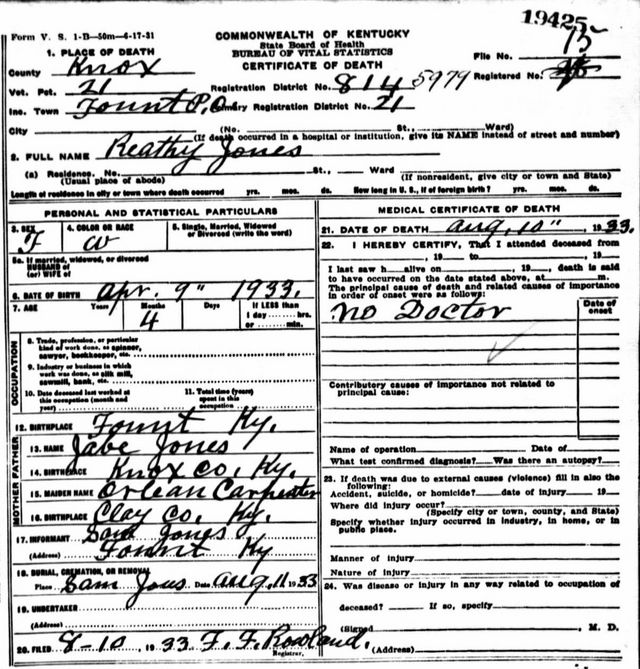 19425
Form V. S. 1-B—50m—6-17-31
COMMONWEALTH OF KENTUCKY
State Board of Health
BUREAU OF VITAL STATISTICS
CERTIFICATE OF DEATH
15
File No.
Registered No.
1. PLACE OF DEATH
County Knox
Vot. Pct. 21
Registration District No. 814 5979
Inc. Town Fount P.O. Primary Registration District No. 21
City (No. St., Ward)
(If death occurred in a hospital or institution, give its NAME instead of street and number)
2. FULL NAME Reathy Jones
(a) Residence. No. St., Ward
(Usual place of abode) (If nonresident, give city or town and State)
Length of residence in city or town where death occurred yrs. mos. ds. How long in U. S., if of foreign birth? yrs. mos. ds.
PERSONAL AND STATISTICAL PARTICULARS
3. SEX F
4. COLOR OR RACE W
5. Single, Married, Widowed or Divorced (write the word)
5a. If married, widowed, or divorced
HUSBAND of
(or) WIFE of
6. DATE OF BIRTH Apr. 9" 1933.
7. AGE Years Months Days If LESS than
4 1 day hrs.
or min.
OCCUPATION
8. Trade, profession, or particular
kind of work done, as spinner,
sawyer, bookkeeper, etc.
9. Industry or business in which
work was done, as silk mill,
sawmill, bank, etc.
10. Date deceased last worked at
this occupation (month and
year)
11. Total time (years)
spent in this
occupation
12. BIRTHPLACE Fount Ky.
MOTHER FATHER
13. NAME Jabe Jones
14. BIRTHPLACE Knox Co, Ky.
15. MAIDEN NAME Orlean Carpenter
16. BIRTHPLACE Clay Co, Ky.
17. INFORMANT Sam Jones
(Address) Fount Ky
18. BURIAL, CREMATION, OR REMOVAL
Place Sam Jous Date Aug, 11 1933
19. UNDERTAKER
(Address)
20. FILED 8-10, 1933 F. F. Rowland,
Registrar.
MEDICAL CERTIFICATE OF DEATH
21. DATE OF DEATH Aug, 10" 1933.
22. I HEREBY CERTIFY, That I attended deceased from
, 19 to , 19
I last saw h alive on , 19 , death is said
to have occurred on the date stated above, at m.
The principal cause of death and related causes of importance
in order of onset were as follows:
Date of onset
No Doctor
Contributory causes of importance not related to
principal cause:
Name of operation Date of
What test confirmed diagnosis? Was there an autopsy?
23. If death was due to external causes (violence) fill in also the
following:
Accident, suicide, or homicide? date of injury 19
Where did injury occur?
(Specify city or town, county, and State)
Specify whether injury occurred in industry, in home, or in
public place.
Manner of injury
Nature of injury
24. Was disease or injury in any way related to occupation of
deceased? If so, specify
(Signed M. D.
(Address)